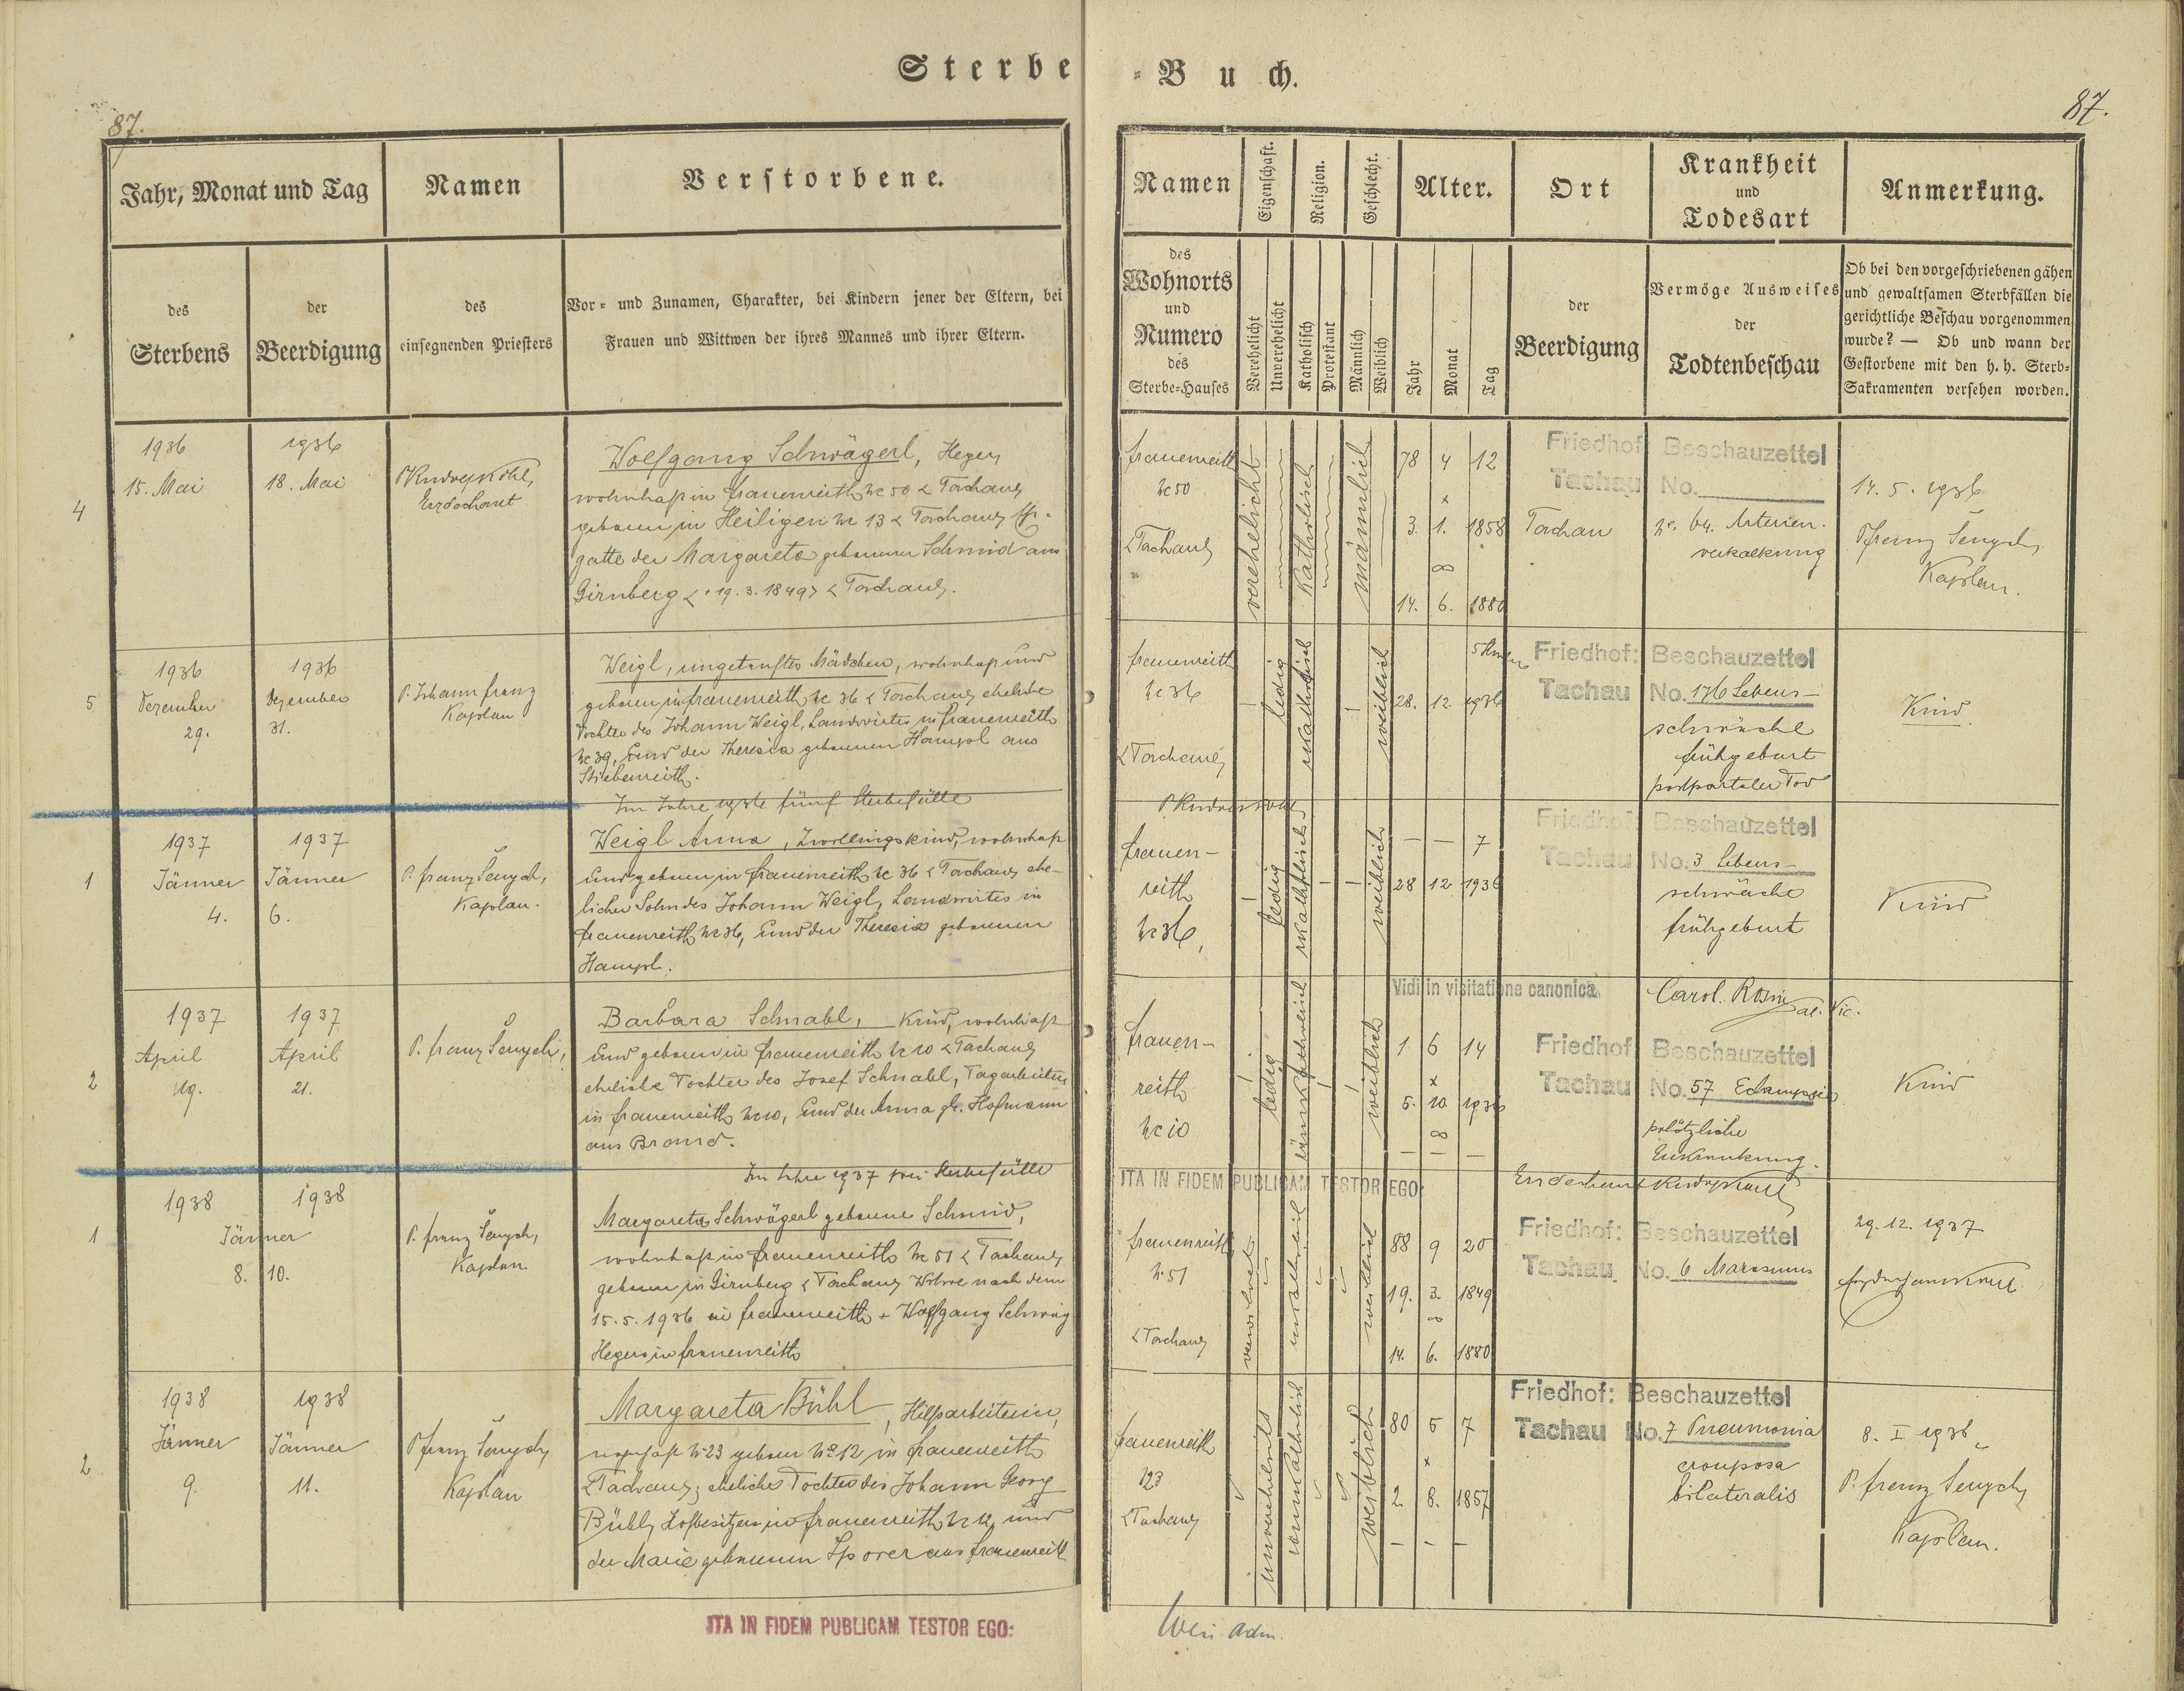 Sterbe-Buch.
87.
87.
Jahr, Monat und Tag
Namen
Verstorbene.
des
Sterbens
der
Beerdigung
des
einsegnenden Priesters
Vor- und Zunamen, Charakter, bei Kindern jener der Eltern, bei
Frauen und Wittwen der ihres Mannes und ihrer Eltern.
Namen
Eigenschaft.
Religion.
Geschlecht.
Alter.
Ort
Krankheit
und
Todesart
Anmerkung.
des
Wohnorts
und
Numero
des
Sterbe-Hauses
Verehelicht
Unverehelicht
Katholisch
Protestant
Männlich
Weiblich
Jahr
Monat
Tag
der
Beerdigung
Vermöge Ausweises
der
Todtenbeschau
Ob bei den vorgeschriebenen gähen
und gewaltsamen Sterbfällen die
gerichtliche Beschau vorgenommen
wurde? — Ob und wann der
Gestorbene mit den h. h. Sterb-
Sakramenten versehen worden.
4
1936
15. Mai
1936
18. Mai
Erzdechant
Wolfgang Schwägerl, Heger,
wohnhaft in Frauenreith Nc 50
geboren in Heiligen Nc 13
gatte der Margareta geborenen Schmid aus
Girnberg 19. 3. 1849 Tachau
Frauenreith
Nc 50
Tachau
verehelicht
Katholisch
männlich
78 4 12
3. 1. 1858
∞
14. 6. 1880
Friedhof
Tachau
Tachau
Beschauzettel
No.
64. Arterien-
verkalkung
14. 5. 1936
Kaplan.
5
1936
Dezember
29.
1936
Dezember
31.
P. Johann Franz
Kaplan
Weigl, ungetauftes Mädchen, wohnhaft und
geboren in Frauenreith Nc 36 Tachau, eheliche
Tochter des Johann Weigl, Landwirtes in Frauenreith
Nc 39, und der Theresia geborenen Hampl aus
Stiebenreith.
Im Jahre 1936 fünf Sterbefälle
Frauenreith
Nc 36
Tachau
ledig
weiblich
28. 12. 1936
Friedhof:
Tachau
Beschauzettel
No. 176 Lebens-
schwäche
Frühgeburt
postpartaler Tod
Kind.
1
1937
Jänner
4.
1937
Jänner
6.
Kaplan.
Weigl Anna, Zwillingskind, wohnhaft
und geboren in Frauenreith Nc 36 Tachau, ehe-
licher Sohn des Johann Weigl, Landwirtes in
Frauenreith Nc 36, und der Theresia geborenen
Hampl.
Frauen-
reith
Nc 36,
ledig
weiblich
— — 7
28 12 1936
Friedhof:
Tachau
Beschauzettel
No. 3 Lebens-
schwäche
Frühgeburt
Kind
Vidi in visitatione canonica
Carol.
2
1937
April
19.
1937
April
21.
Barbara Schnabl, Kind, wohnhaft
und geboren in Frauenreith Nc 10 Tachau,
eheliche Tochter des Josef Schnabl, Tagarbeiters
in Frauenreith Nc 10, und der Anna gb. Hofmann
aus Brand.
Im Jahre 1937 zwei Sterbefälle
Frauen-
reith
Nc 10
ledig
weiblich
1 6 14
5. 10. 1936
∞
— — —
Friedhof
Tachau
Beschauzettel
No. 57 Eclampsie
plötzliche
Erkrankung.
Kind
ITA IN FIDEM PUBLICAM TESTOR EGO:
1
1938
1938
Jänner
8. 10.
Kaplan.
Margareta Schwägerl geborene Schmid,
wohnhaft in Frauenreith Nc 51 Tachau,
geboren in Girnberg Tachau, Witwe nach dem
15. 5. 1936 in Frauenreith + Wolfgang Schwäg
Hegers in Frauenreith
Frauenreith
Nc 51
Tachau
verwitwet
weiblich
88 9 20
19. 3. 1849
∞
14. 6. 1880
Friedhof:
Tachau
Beschauzettel
No. 6 Marasmus
29. 12. 1937
2
1938
Jänner
9.
1938
Jänner
11.
Kaplan
Margareta Bühl, Hilfsarbeiterin,
Nc 23 geboren Nc 12 in Frauenreith
Tachau; eheliche Tochter des Johann Georg
Bühl, Hofbesitzers in Frauenreith Nc 12, und
der Marie geborenen Sporer aus Frauenreith
Frauenreith
123
Tachau
unverehelicht
weiblich
80 5 7
2. 8. 1857
— — —
Friedhof:
Tachau
Beschauzettel
No. 7 Pneumonia
crouposa
bilateralis
8. I 1938
Kaplan.
ITA IN FIDEM PUBLICAM TESTOR EGO: